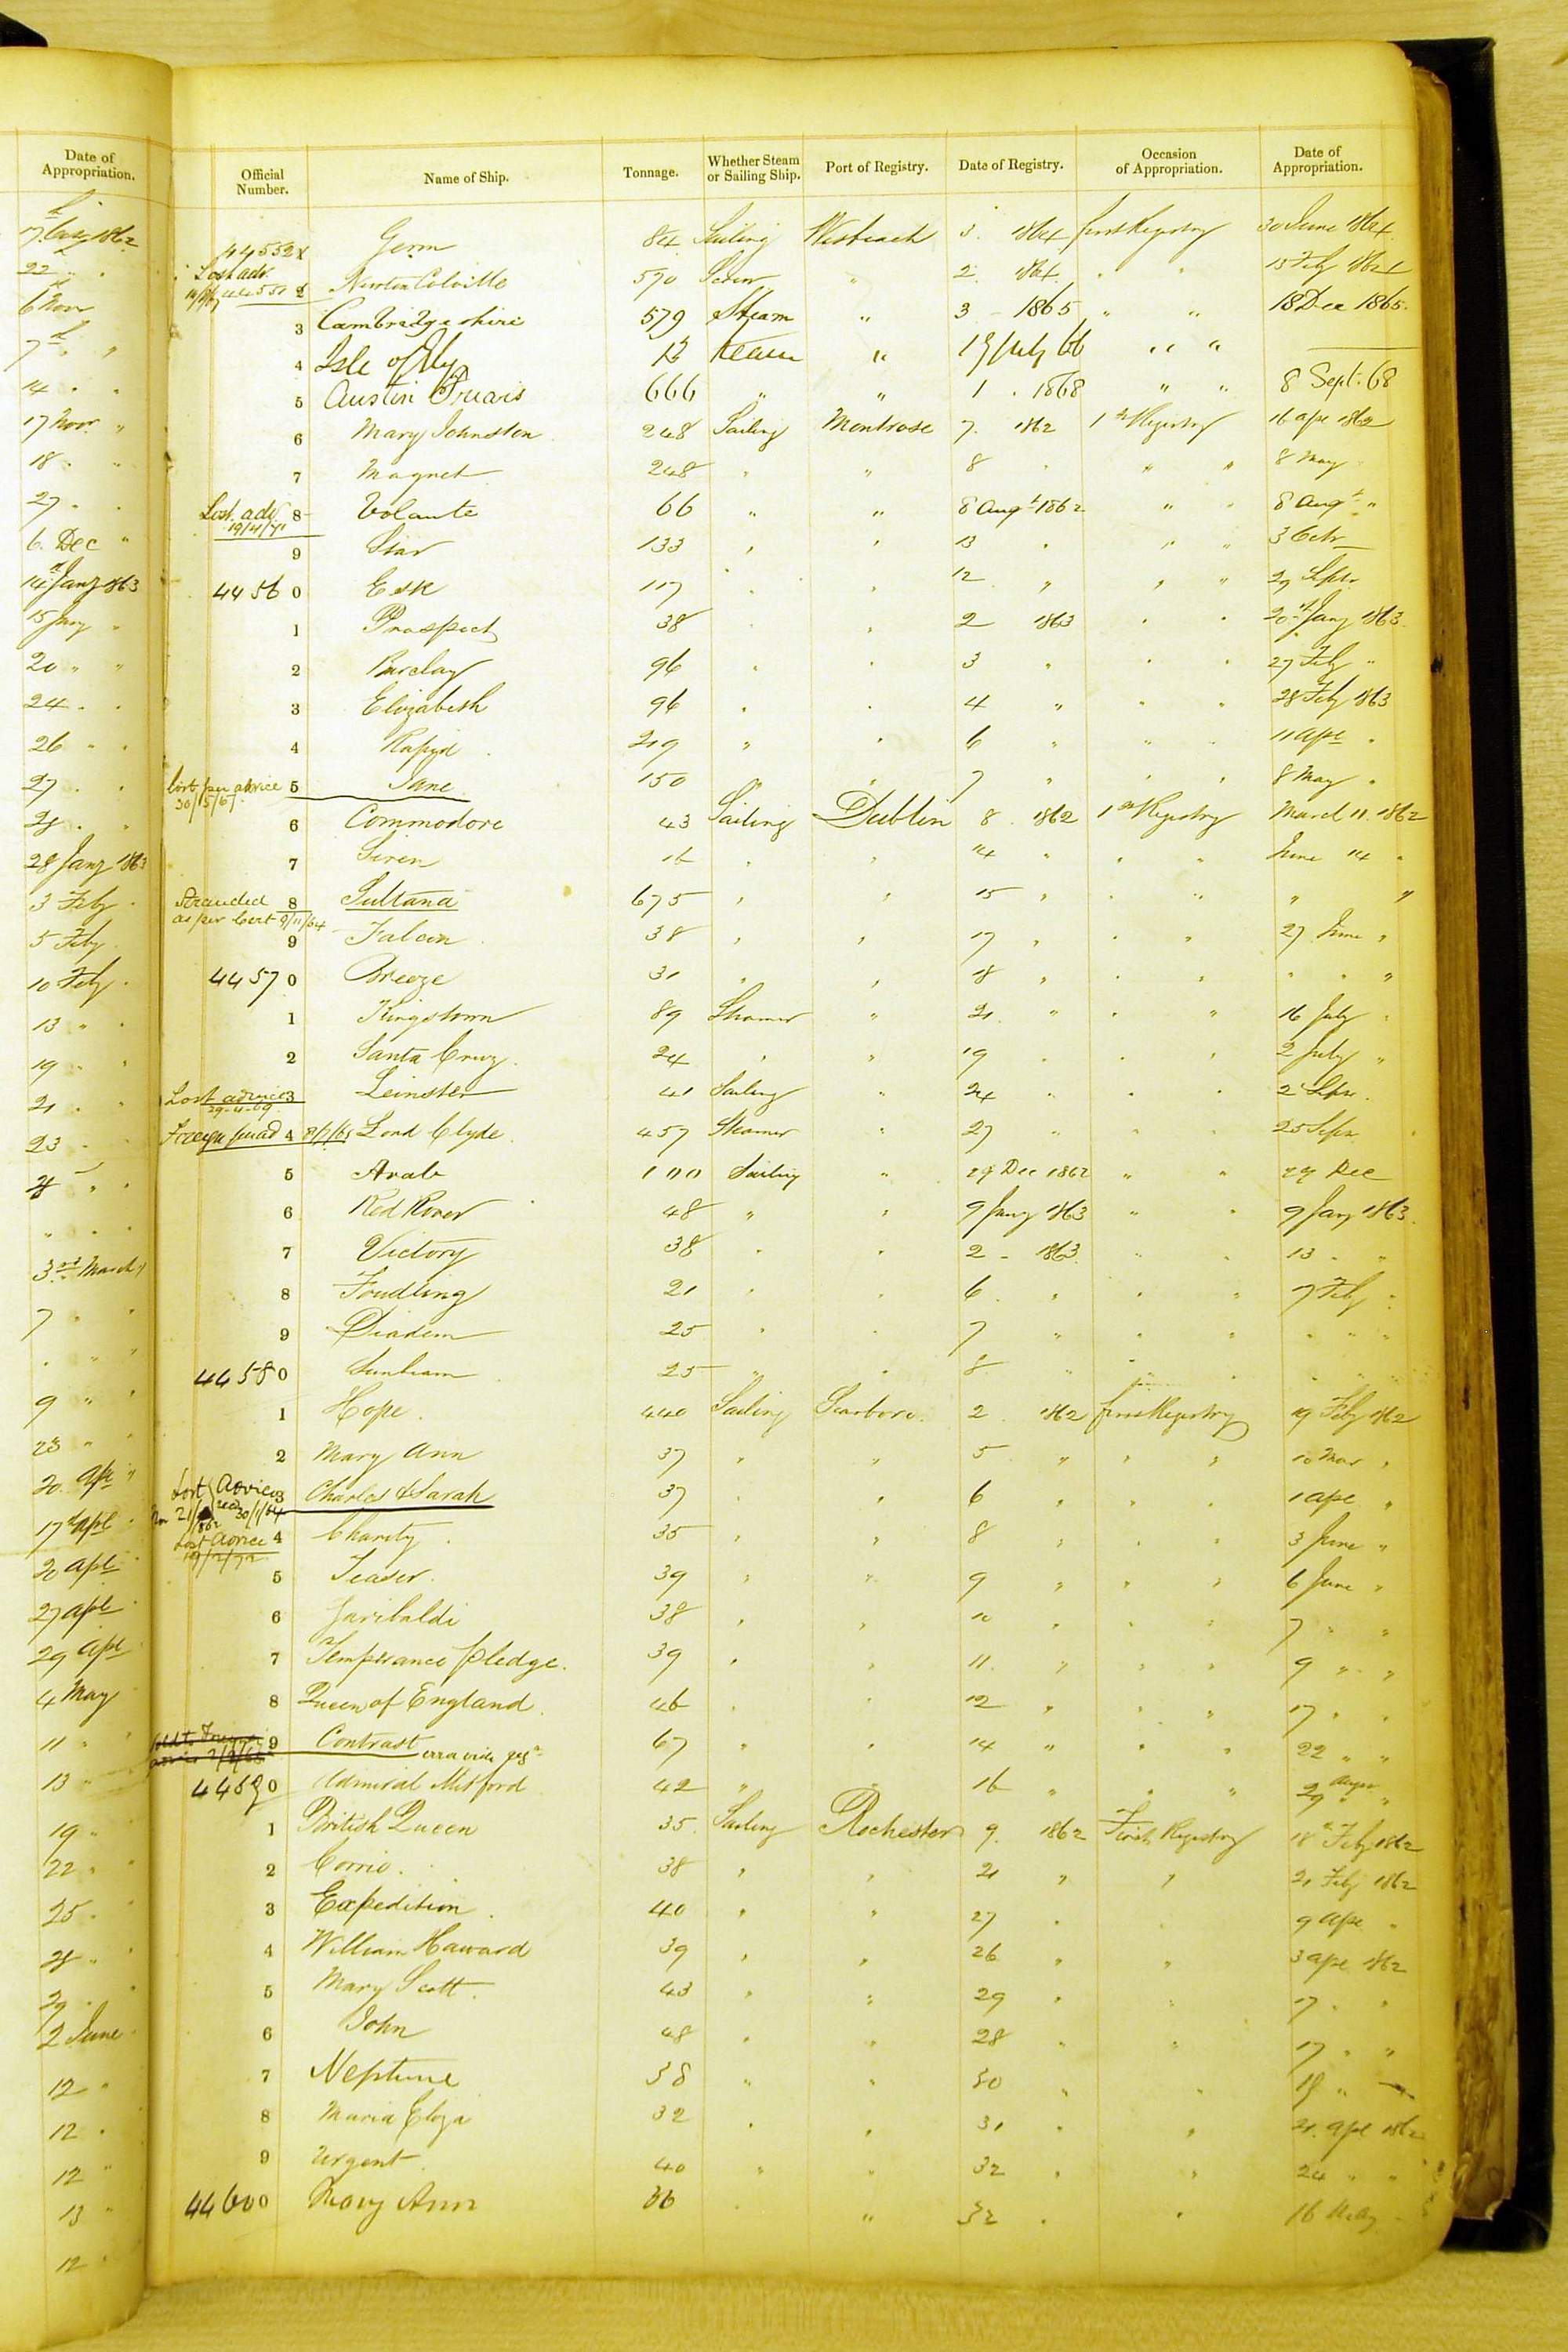 Date of Appropriation.
17 Aug 1862
22 " "
6 Nov
7 " "
14 " "
17 Nov "
18 " "
27 " "
6. Dec "
14 Jany 1863
15 Jany "
20 " "
24 " "
26 " "
27 " "
28 " "
28 Jany 1863
3 Feby "
5 Feby
10 Feby "
13 " "
19 " "
21 " "
23 "
" " "
3rd March "
7 " "
" " "
9 " "
23 " "
20 Ape "
17 Ape "
20 Ape
27 Ape
29 Ape
4 May
11 "
13 "
19 "
22 "
25 "
28 "
29 "
2 June
12 "
12 "
12 "
13 "
12 "
Official Number. Name of Ship. Tonnage. Whether Steam or Sailing Ship. Port of Registry. Date of Registry. Occasion of Appropriation. Date of Appropriation.
Gem 84 Sailing Wisbeach 3. 1864 first Registry 30 June 1864
Lost adv.
2 Newton Colville 590 Screw " 2 1864 " " 15 Feby 1864
3 Cambridgeshire 579 Steam " 3 - 1865 " " 18 Dec 1865.
4 Isle of Ely Steam " 19 July 66 " "
5 Austin Friars 666 " " 1 . 1868 " " 8 Sept. 68
6 Mary Johnston 248 Sailing Montrose 7. 1862 1st Registry 16 Ape 1862
7 Magnet 248 " " 8 " " " 8 May
Lost adv 8 Volante 66 " " 8 Augt 1862 " " 8 Augt "
19/4/71
9 Star 133 " " 13 " " " 3 Octr
44560 Esk 117 " " 12 " " " 29 Sepr
1 Prospect 38 " " 2 1863 " " 20th Jany 1863.
2 Barclay 96 " " 3 " " " 27 Feby "
3 Elizabeth 96 " " 4 " " " 28 Feby 1863
4 Rapid 219 " " 6 " " " 11 Ape "
Lost per advice 5 Jane 150 " " 7 " " " 8 May "
30/5/67
6 Commodore 43 Sailing Dublin 8 . 1862 1st Registry March 11. 1862
7 Siren 16 " " 14 " " " June 14 "
Stranded 8 Sultana 675 " " 15 " " " " "
as per Cert 9/11/64
9 Falcon 38 " " 17 " " " 27 June "
44570 Breeze 31 " " 18 " " " " " "
1 Kingstown 89 Steamer " 21 " " " 16 July "
2 Santa Cruz 24 " " 19 " " " 2 July "
Lost advice 3 Leinster 41 Sailing " 24 " " " 2 Sepr.
29-11-69
4 Lord Clyde 457 Steamer " 27 " " " 25 Sepr
5 Arab 100 Sailing " 29 Dec 1862 " " 29 Dec
6 Red Rover 48 " " 9 Jany 1863 " " 9 Jany 1863.
7 Victory 38 " " 2 - 1863 " " 13 " "
8 Foudling 21 " " 6 " " " 7 Feby "
9 Diadem 25 " " 7 " " " " " "
44580 Sunbeam 25 " " 8 " " " " " "
1 Hope 440 Sailing Scarboro. 2 1862 first Registry 19 Feby 1862
2 Mary Ann 37 " " 5 " " " 10 Mar "
Lost Advice 3 Charles & Sarah 37 " " 6 " " " 1 Ape "
30/1/64
Lost Advice 4 Charity 35 " " 8 " " " 3 June "
19/2/72
5 Teaser 39 " " 9 " " " 6 June "
6 Garibaldi 38 " " 10 " " " 7 " "
7 Temperance Pledge. 39 " " 11. " " " 9 " "
8 Queen of England 46 " " 12 " " " 17 " "
9 Contrast 67 " " 14 " " " 22 " "
44590 Admiral Mitford 42 " " 16 " " " 29 Augst "
1 British Queen 35 Sailing Rochester 9. 1862 First Registry 18th Feby 1862
2 Corrio. 38 " " 21 " " 21 Feby 1862
3 Expedition 40 " " 27 " " 9 Ape "
4 William Haward 39 " " 26 " " 3 Ape 1862
5 Mary Scott 43 " " 29 " " 17 " "
6 John 48 " " 28 " " 17 " "
7 Neptune 38 " " 30 " " 19 "
8 Maria Eliza 32 " " 31 " " 21. Ape 1862
9 Urgent 40 " " 32 " " 24 " "
44600 Mary Ann 36 " 32 " " 16 May